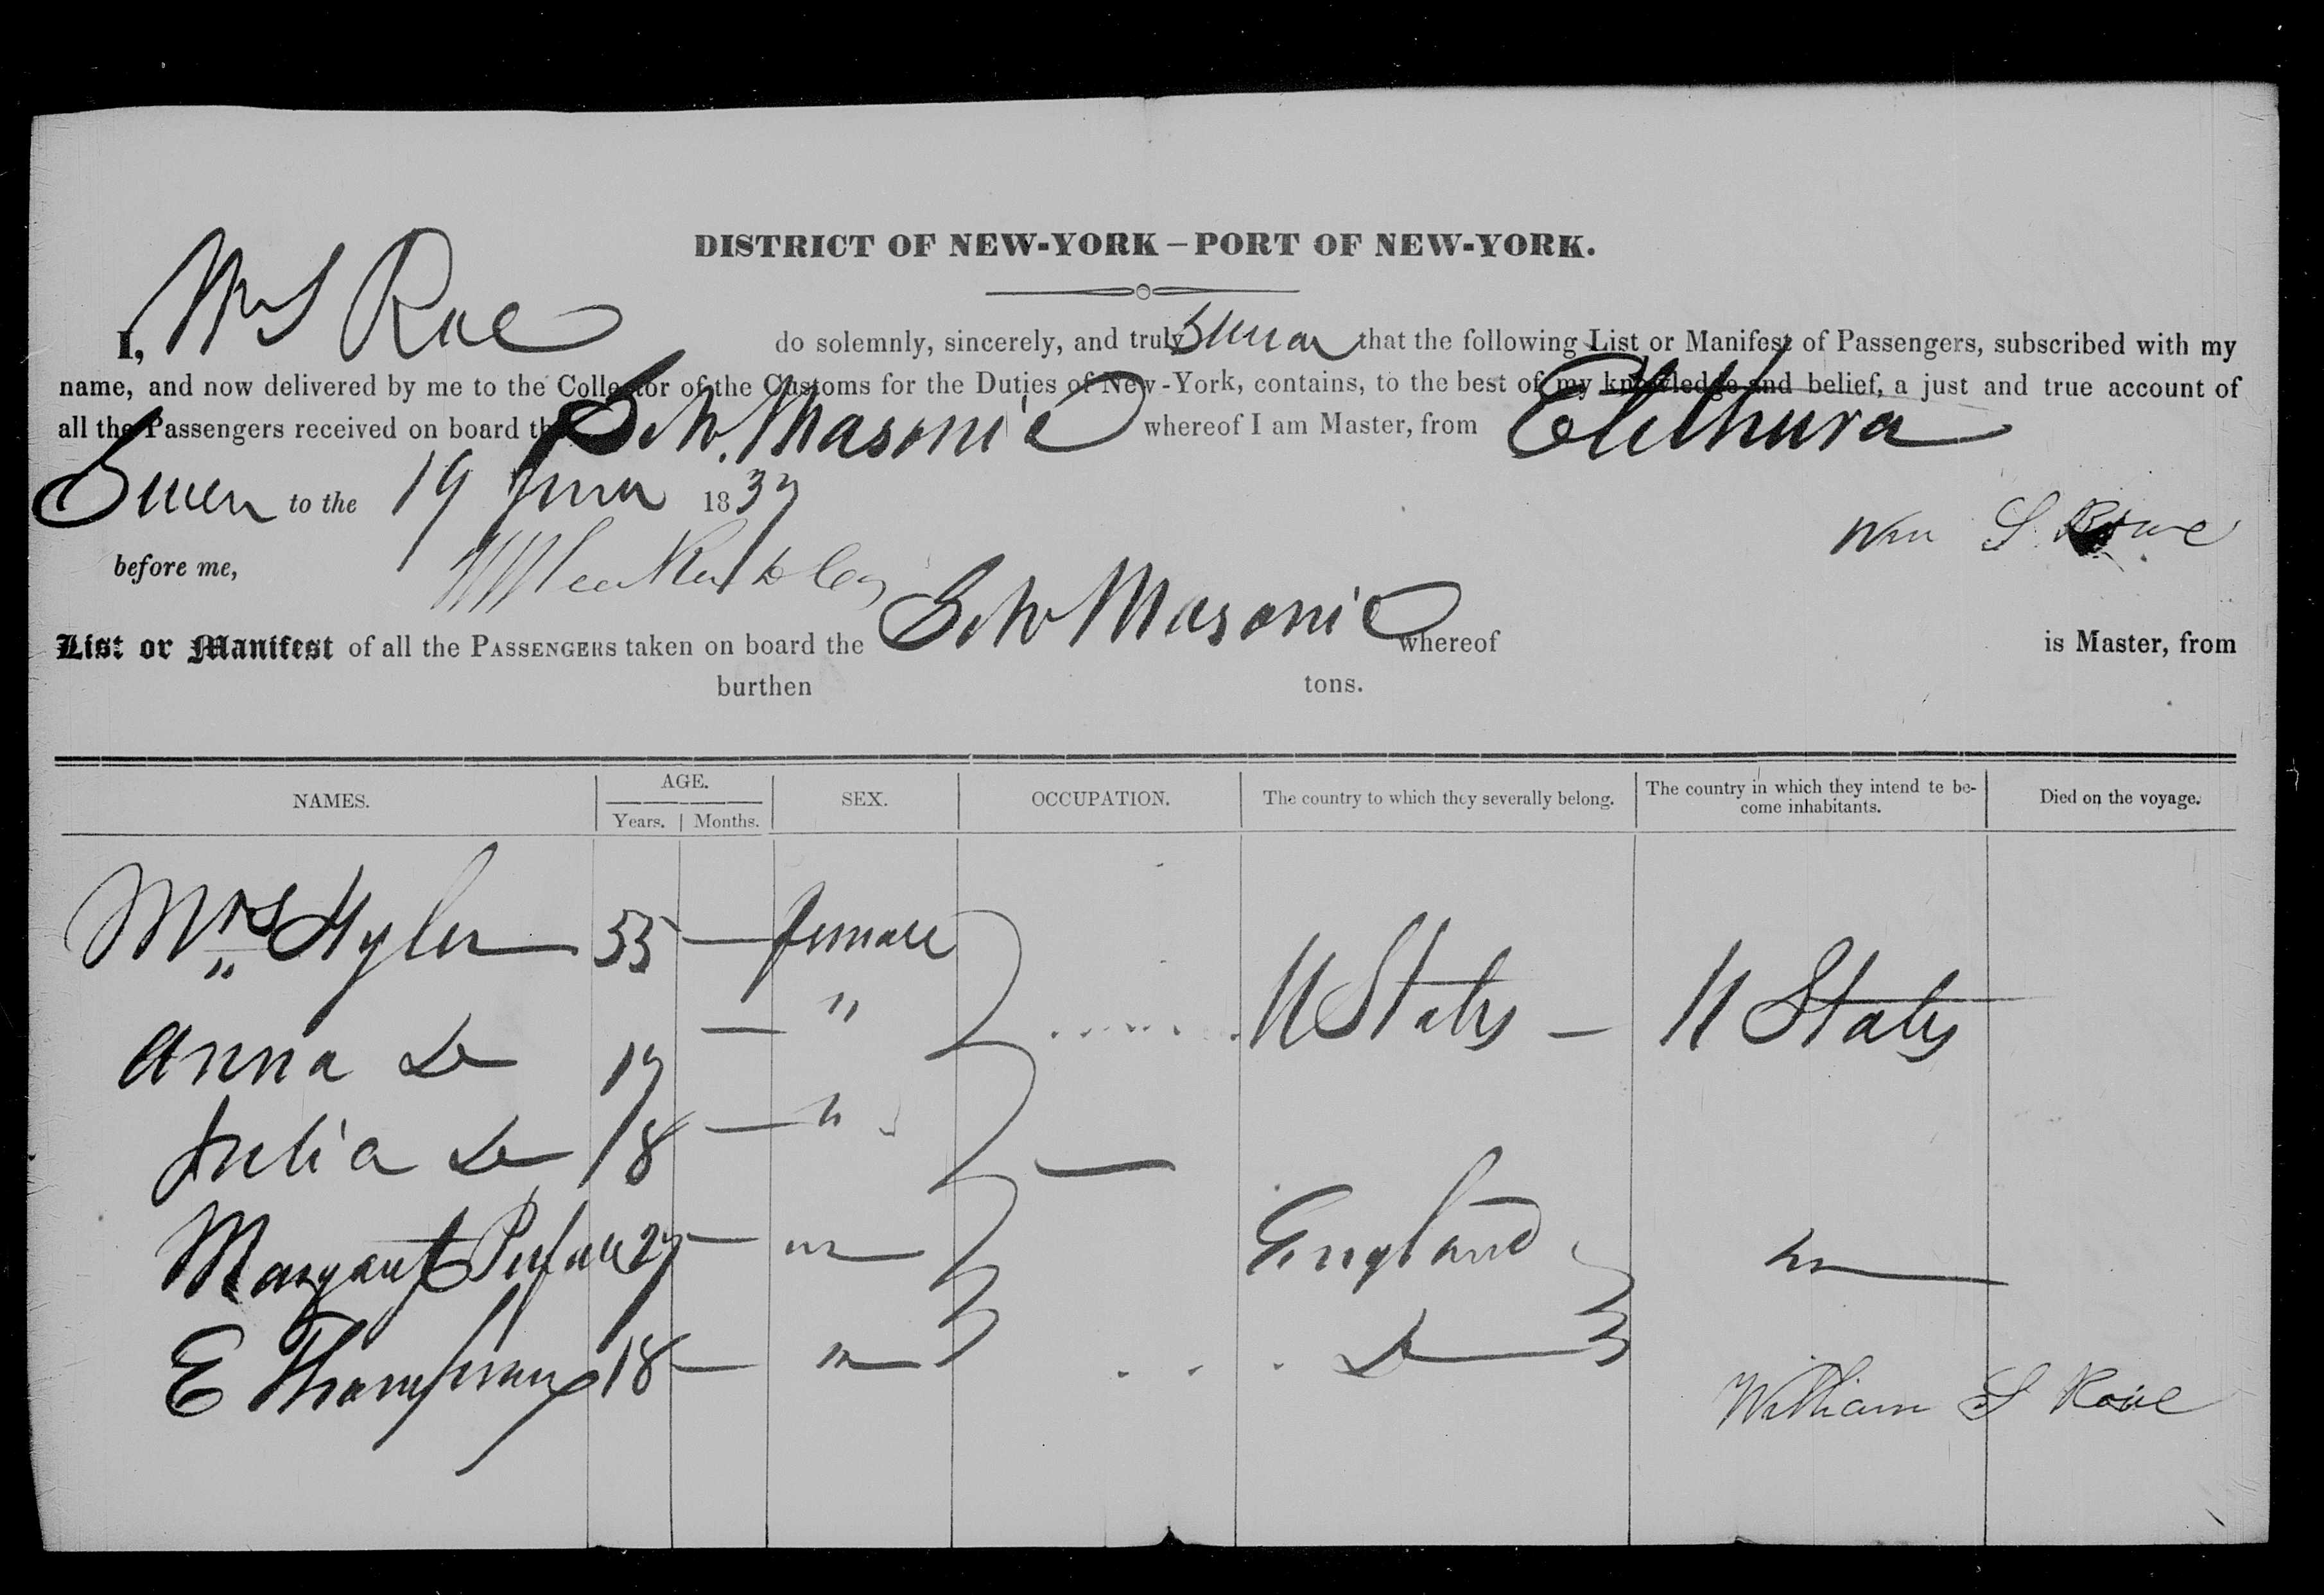 DISTRICT OF NEW-YORK – PORT OF NEW-YORK.
I, Wm S Roe do solemnly, sincerely, and truly swear that the following List or Manifest of Passengers, subscribed with my
name, and now delivered by me to the Collector of the Customs for the Duties of New-York, contains, to the best of my knowledge and belief, a just and true account of
all the Passengers received on board the Schr. Masonic whereof I am Master, from Eluthura
Sworn to the 19 June 1837
Wm S. Rowe
before me,
List or Manifest of all the PASSENGERS taken on board the Schr Masonic whereof is Master, from
burthen tons.
NAMES. AGE. Years. Months. SEX. OCCUPATION. The country to which they severally belong. The country in which they intend te become inhabitants. Died on the voyage.
Mrs Hyler 55 — female U States — U States
Anna Do 19 — "
Julia Do 18 — " —
Margaret 27 — " England "
E Thompson 18 — " Do
William S Rowe